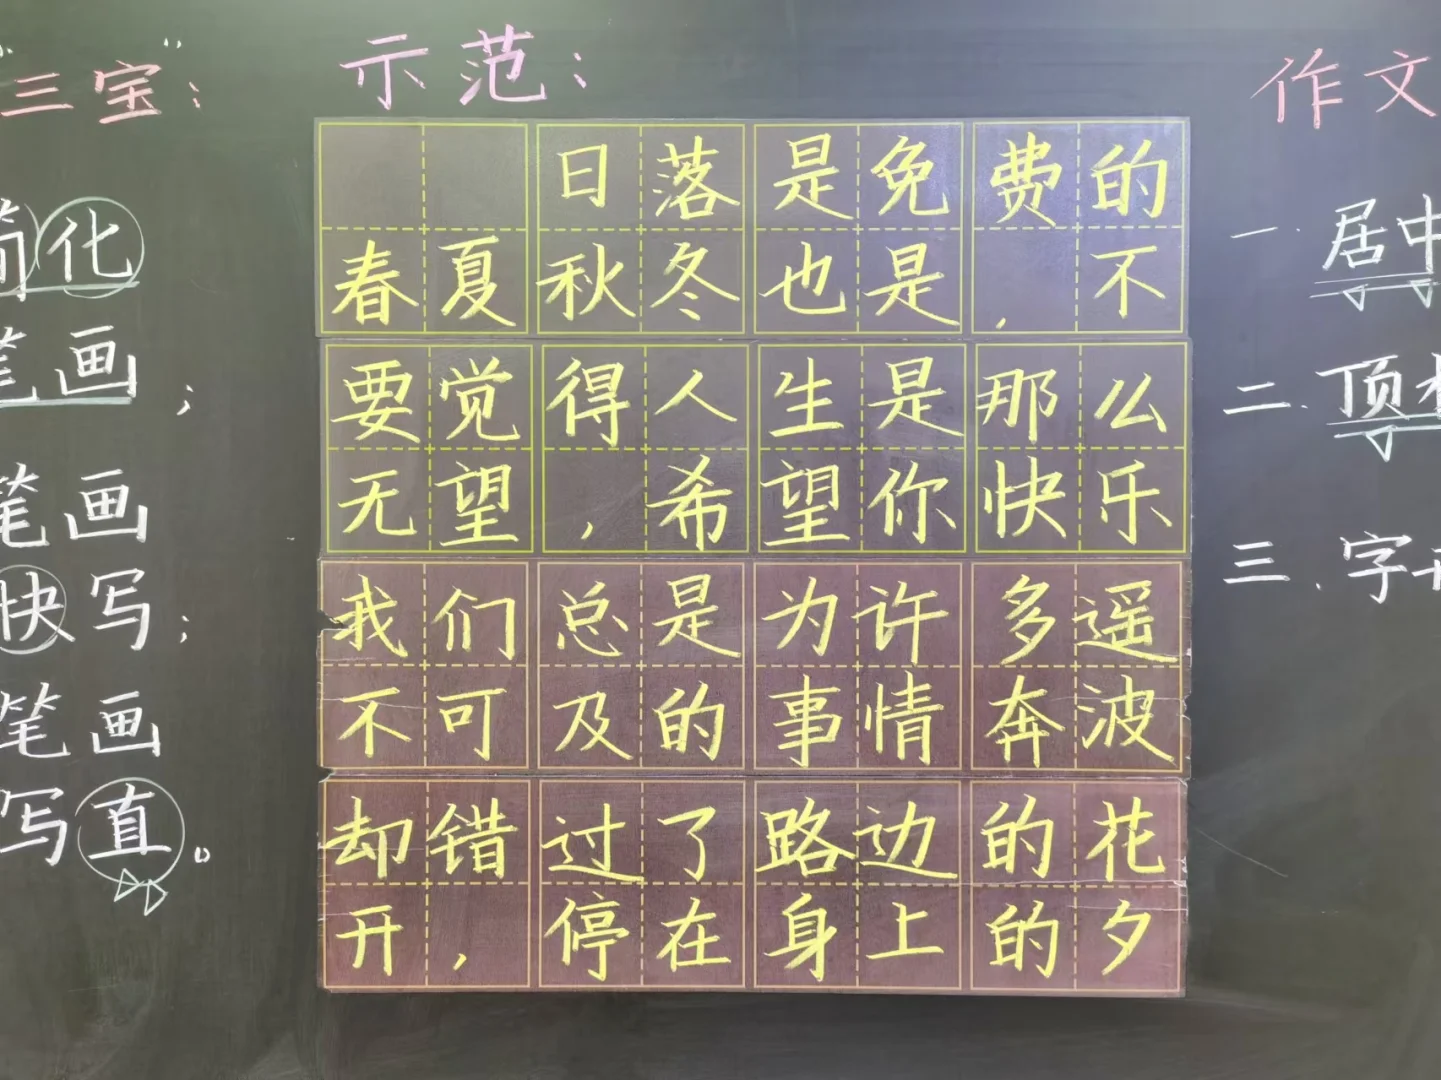 “三宝”：
简化
笔画；
笔画
快写；
笔画
写直。
示范：
日落是免费的
春夏秋冬也是，不
要觉得人生是那么
无望，希望你快乐
我们总是为许多遥
不可及的事情奔波
却错过了路边的花
开，停在身上的夕
作文
一.居中
二.顶
三.字